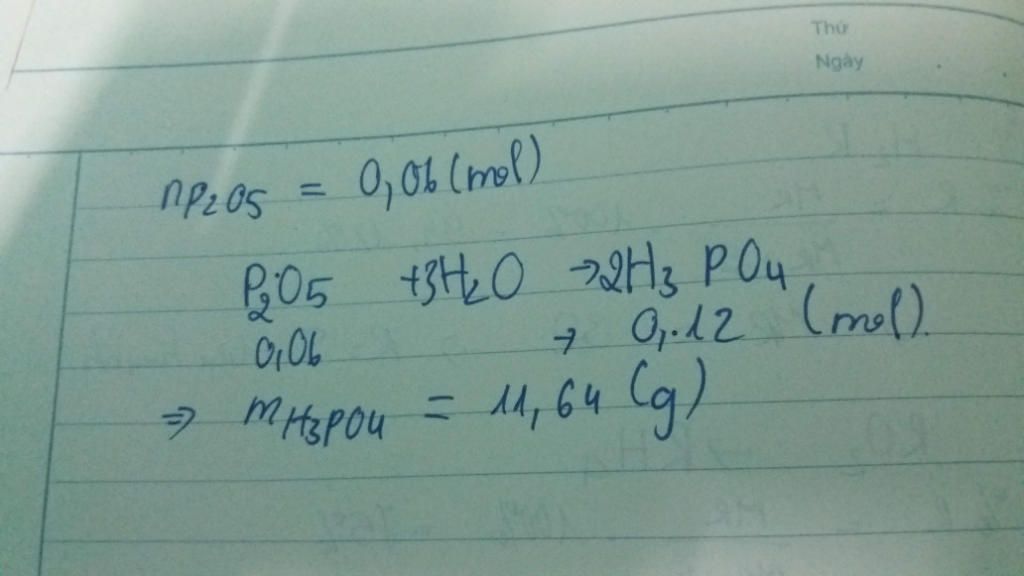 Thứ
Ngày
nP2O5 = 0,06 (mol)
P2O5 +3H2O →2H3PO4
0,06 → 0,12 (mol).
⇒ mH3PO4 = 11,64 (g)